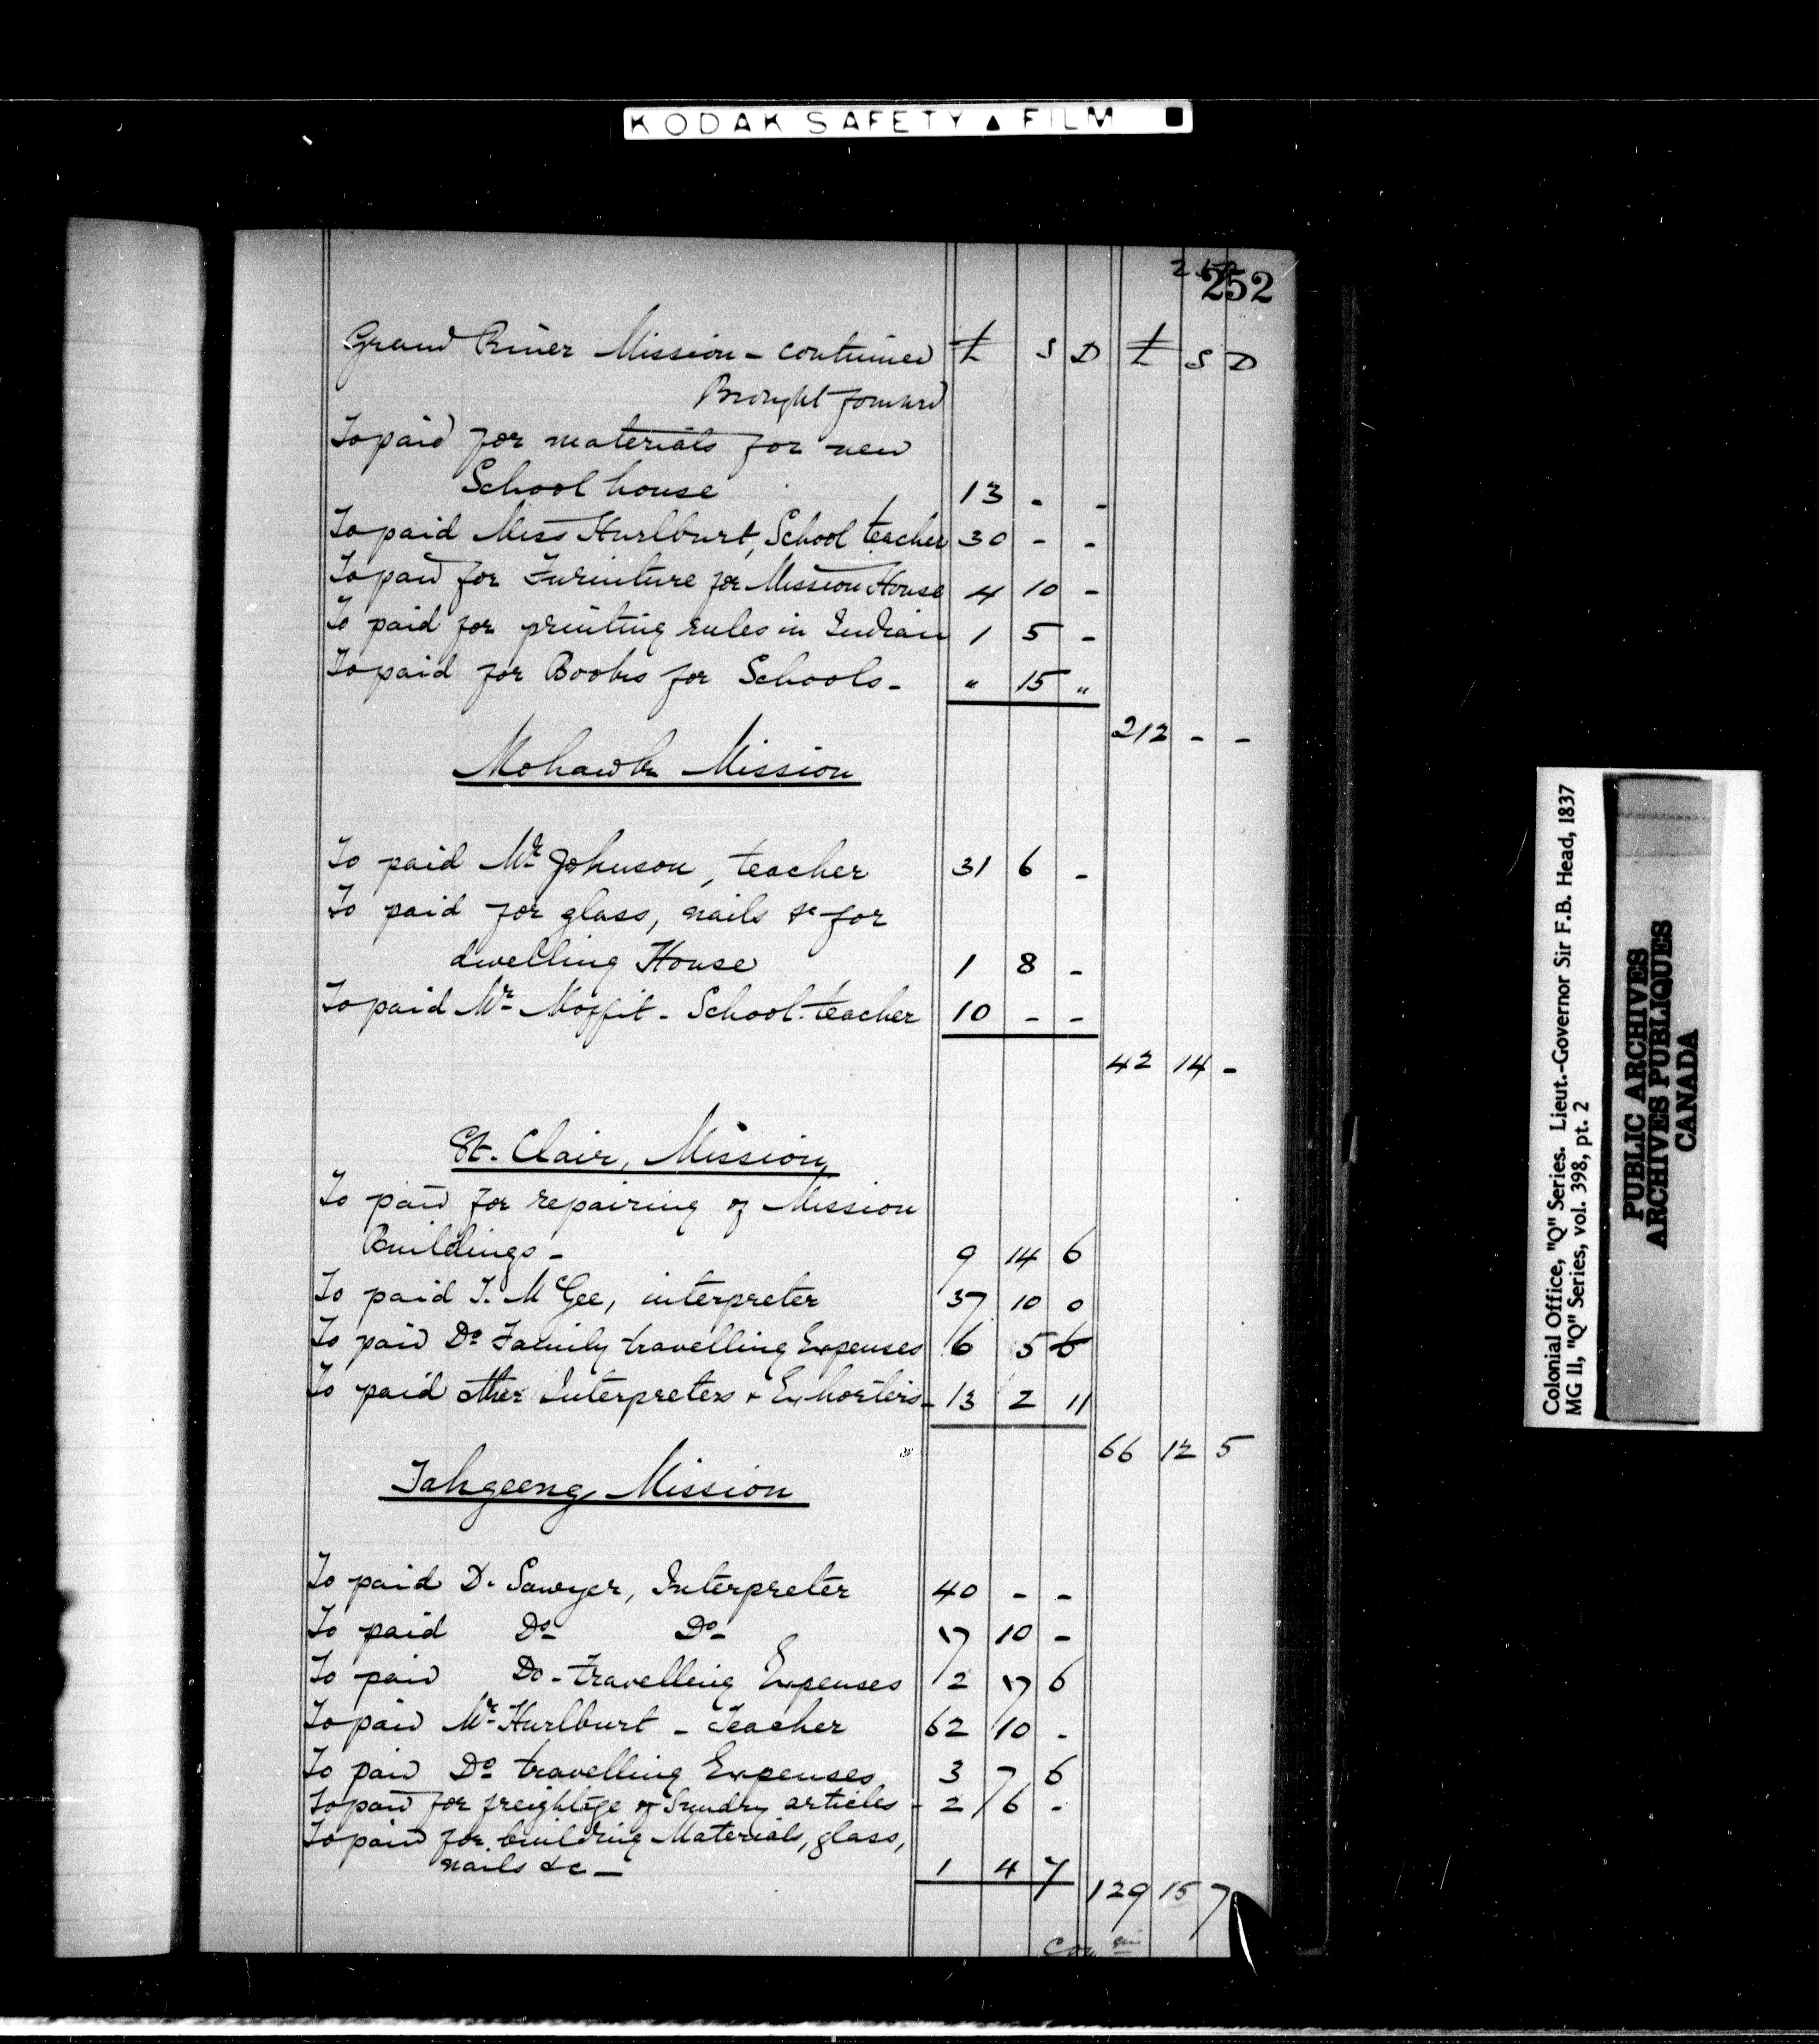 KODAK SAFETY ▲ FILM ■
252
Grand River Mission - continued £ S D £ S D
Brought forward
To paid for materials for new
School house 13 - -
To paid Miss Hurlburt, School teacher 30 - -
To paid for Furniture for Mission House 4 10 -
To paid for printing rules in Indian 1 5 -
To paid for Books for Schools - " 15 "
212 - -
Mohawk Mission
To paid Mr Johnson, teacher 31 6 -
To paid for glass, nails &c for
dwelling House 1 8 -
To paid Mr Moffit - School-teacher 10 - -
42 14 -
St. Clair, Mission
To paid for repairing of Mission
Buildings - 9 14 6
To paid T. McGee, interpreter 37 10 0
To paid Do Family travelling Expenses 6 5
To paid other Interpreters & Exhorters - 13 2 11
66 12 5
Sahgeeng Mission
To paid D. Sawyer, Interpreter 40 - -
To paid Do Do - 17 10 -
To paid Do - travelling Expenses 2 17 6
To paid Mr Hurlburt - Teacher 62 10 -
To paid Do travelling Expenses 3 7 6
To paid for freightage of Sundry articles - 2 6 -
To paid for building Materials, glass,
nails &c - 1 4 7
129 15 7
Colonial Office, "Q" Series. Lieut.-Governor Sir F.B. Head, 1837
MG 11, "Q" Series, vol. 398, pt. 2
PUBLIC ARCHIVES
ARCHIVES PUBLIQUES
CANADA